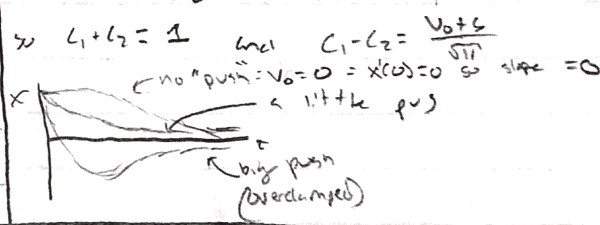 so C₁+C₂ = 1 and C₁-C₂ = (V₀+5)/√11
no "push" = V₀=0 = x'(0)=0 so slope =0
X a little pus
t
big push
(overdamped)